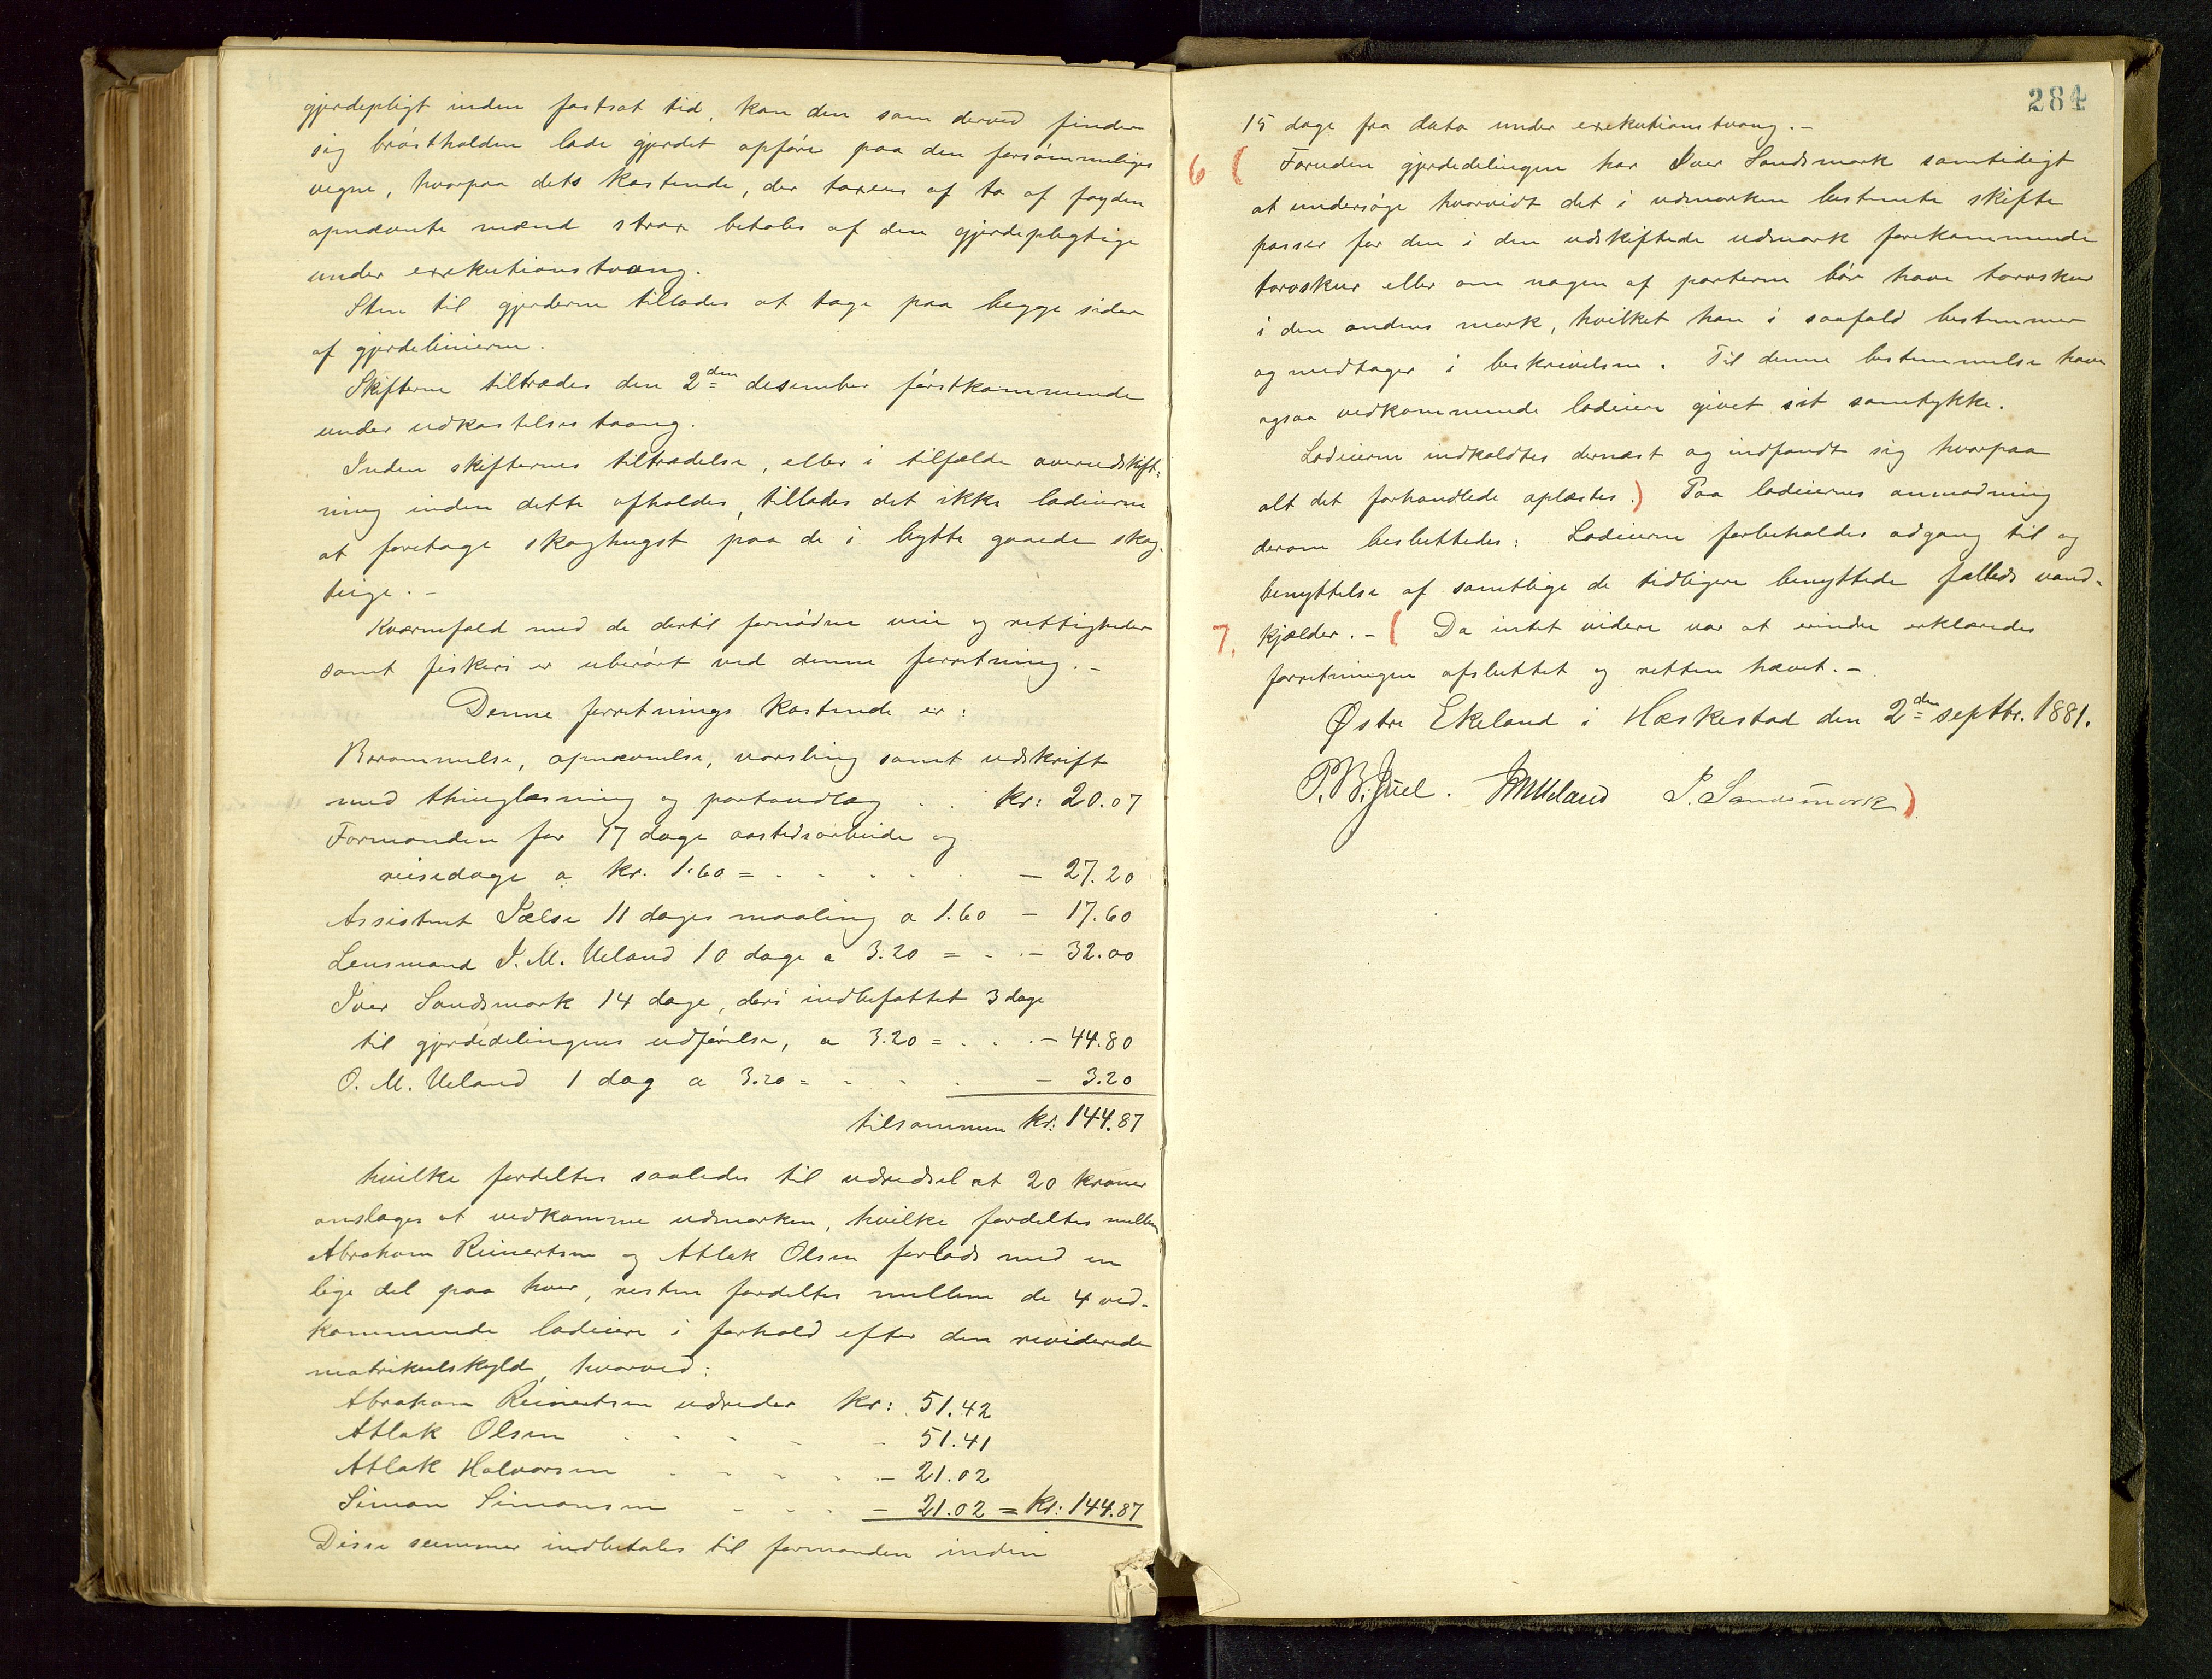 gjerdepligt inden fastsat tid, kan den som derved finder
sig brøstholden lade gjerdet opføre paa den forsømmeliges
vegne, hvorpaa dets kostende, der taxeres af to af fogden
opnævnte mænd strax betales af den gjerdepligtige
under exekutionstvang.
Sten til gjerderne tillades at tage paa begge sider
af gjerdelinierne.
Skifterne tiltrædes den 2den desember førstkommende
under udkastelsestvang.
Inden skifternes tiltrædelse, eller i tilfælde overudskift-
ning inden dette afholdes, tillades det ikke lodeierne
at foretage skoghugst paa de i bytte gaaede skog-
teige. -
Kværnefald med de dertil fornødne veie og rettigheder
samt fiskeri er uberørt ved denne forretning. -
Denne forretnings kostende er:
Berammelse, opnævnelse, varsling samt udskrift
med thinglæsning og portoudlæg . . kr: 20.07
Formanden for 17 dage aastedsarbeide og
reisedage a kr. 1.60 = . . . . . - 27.20
Assistent Pælse 11 dages maaling a 1.60 - 17.60
Lensmand J. M. Ueland 10 dage a 3.20 = . . - 32.00
Iver Sandsmark 14 dage, deri indbefattet 3 dage
til gjerdedelingens udførelse, a 3.20 = . . . - 44.80
O. M. Ueland 1 dag a 3.20 = . . . - 3.20
tilsammen kr: 144.87
hvilke fordeltes saaledes til udredsel at 20 kroner
anslages at vedkomme udmarken, hvilke fordeltes mellem
Abraham Reinertsen og Atlak Olsen forlods med en
lige del paa hver, resten fordeltes mellem de 4 ved-
kommende lodeiere i forhold efter den reviderede
matrikulskyld, hvorved:
Abraham Reinertsen udreder kr: 51.42
Atlak Olsen . . . . - 51.41
Atlak Halvorsen . . . . - 21.02
Simon Simonsen . . . - 21.02 = kr: 144.87
Disse summer indbetales til formanden inden
284
15 dage fra dato under exekutionstvang. -
6 ( Foruden gjerdedelingen har Iver Sandsmark samtidigt
at undersøge hvorvidt det i udmarken bestemte skifte
passer for den i den udskiftede udmark forekommende
torvskur eller om nogen af parterne bør have torvskur
i den andens mark, hvilket han i saafald bestemmer
og medtager i beskrivelsen. Til denne bestemmelse have
ogsaa vedkommende lodeiere givet sit samtykke.
Lodeierne indkaldtes dernæst og indfandt sig hvorpaa
alt det forhandlede oplæstes.) Paa lodeiernes anmodning
derom besluttedes: Lodeierne forbeholdes adgang til og
benyttelse af samtlige de tidligere benyttede fælleds vand-
7. kjælder. - ( Da intet videre var at erindre erklæredes
forretningen afsluttet og retten hævet. -
Østre Ekeland i Heskestad den 2den septbr. 1881.
P. B. Juel. JMUeland I. Sandsmark)